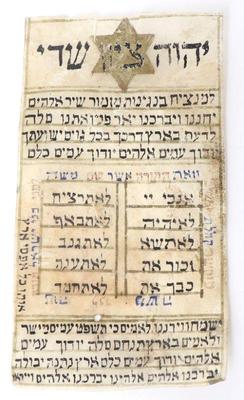 יהוה ציון שדי
למנצייח בנגינת מזמור שיר אלהים
יחננו ויברכנו יאר פניו אתנו סלה
לדעת בארץ דרכך בכל גוים ישועתך
יודוך עמים אלהים יודוך עמים כלם
וזאת התורה אשר שם משה
אנכי יי
לא יהיה
לא תשא
זכור את
כבד את
לא תרצח
לא תנאף
לא תגנב
לא תענה
לא תחמד
ישמחו וירננו לאמים כי תשפט עמים מישר
ולאמים בארץ תנחם סלה יודוך עמים
אלהים יודוך עמים כלם ארץ נתנה יבולה
יברכנו אלהים אלהינו יברכנו אלהים וייראו